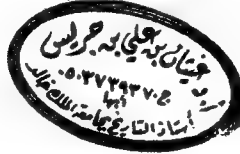 غيثان بن علي بن جريس
ج.٠٥٠٣٧٣٩٣٧
أبها
أستاذ التاريخ بجامعة الملك خالد